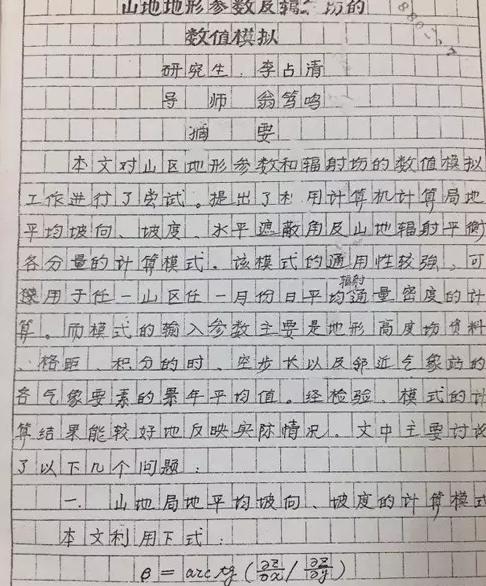 山地地形参数及辐射场的
数值模拟
研究生 李占清
导师 翁笃鸣
摘要
本文对山区地形参数和辐射场的数值模拟
工作进行了尝试。提出了利用计算机计算局地
平均坡向、坡度、水平遮蔽角及山地辐射平衡
各分量的计算模式。该模式的通用性较强,可
用于任一山区任一月份日平均辐射通量密度的计
算。而模式的输入参数主要是地形高度场资料
、格距、积分的时、空步长以及邻近气象站的
各气象要素的累年平均值。经检验、模式的计
算结果能较好地反映实际情况。文中主要讨论
了以下几个问题:
一. 山地局地平均坡向、坡度的计算模式
本文利用下式:
β = arc tg (∂z/∂x / ∂z/∂y)